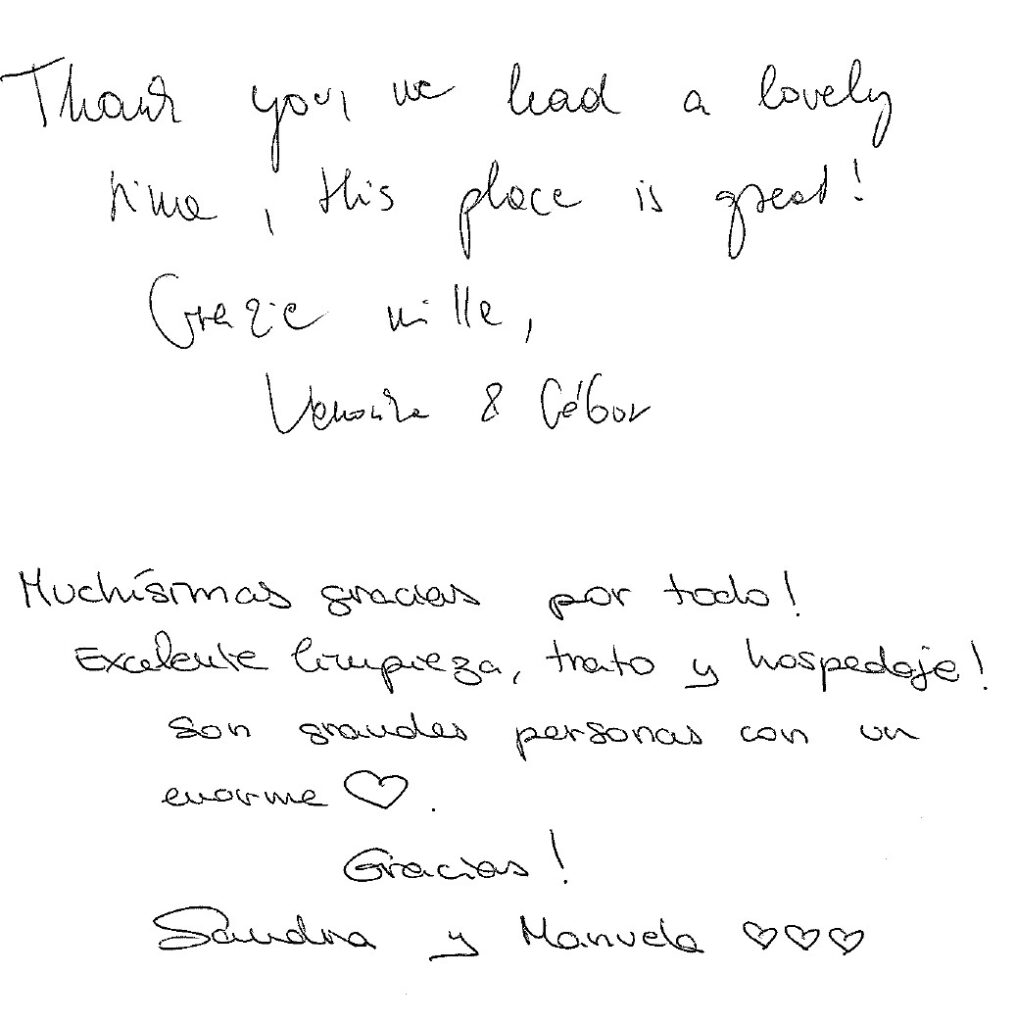 Thank you, we had a lovely
time, this place is great!
Grazie mille,
Veronika & Gábor
Muchísimas gracias por todo!
Excelente limpieza, trato y hospedaje!
Son grandes personas con un
enorme ♡.
Gracias!
Sandra y Manuela ♡♡♡